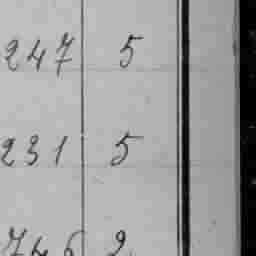 247 5
231 5
746 2